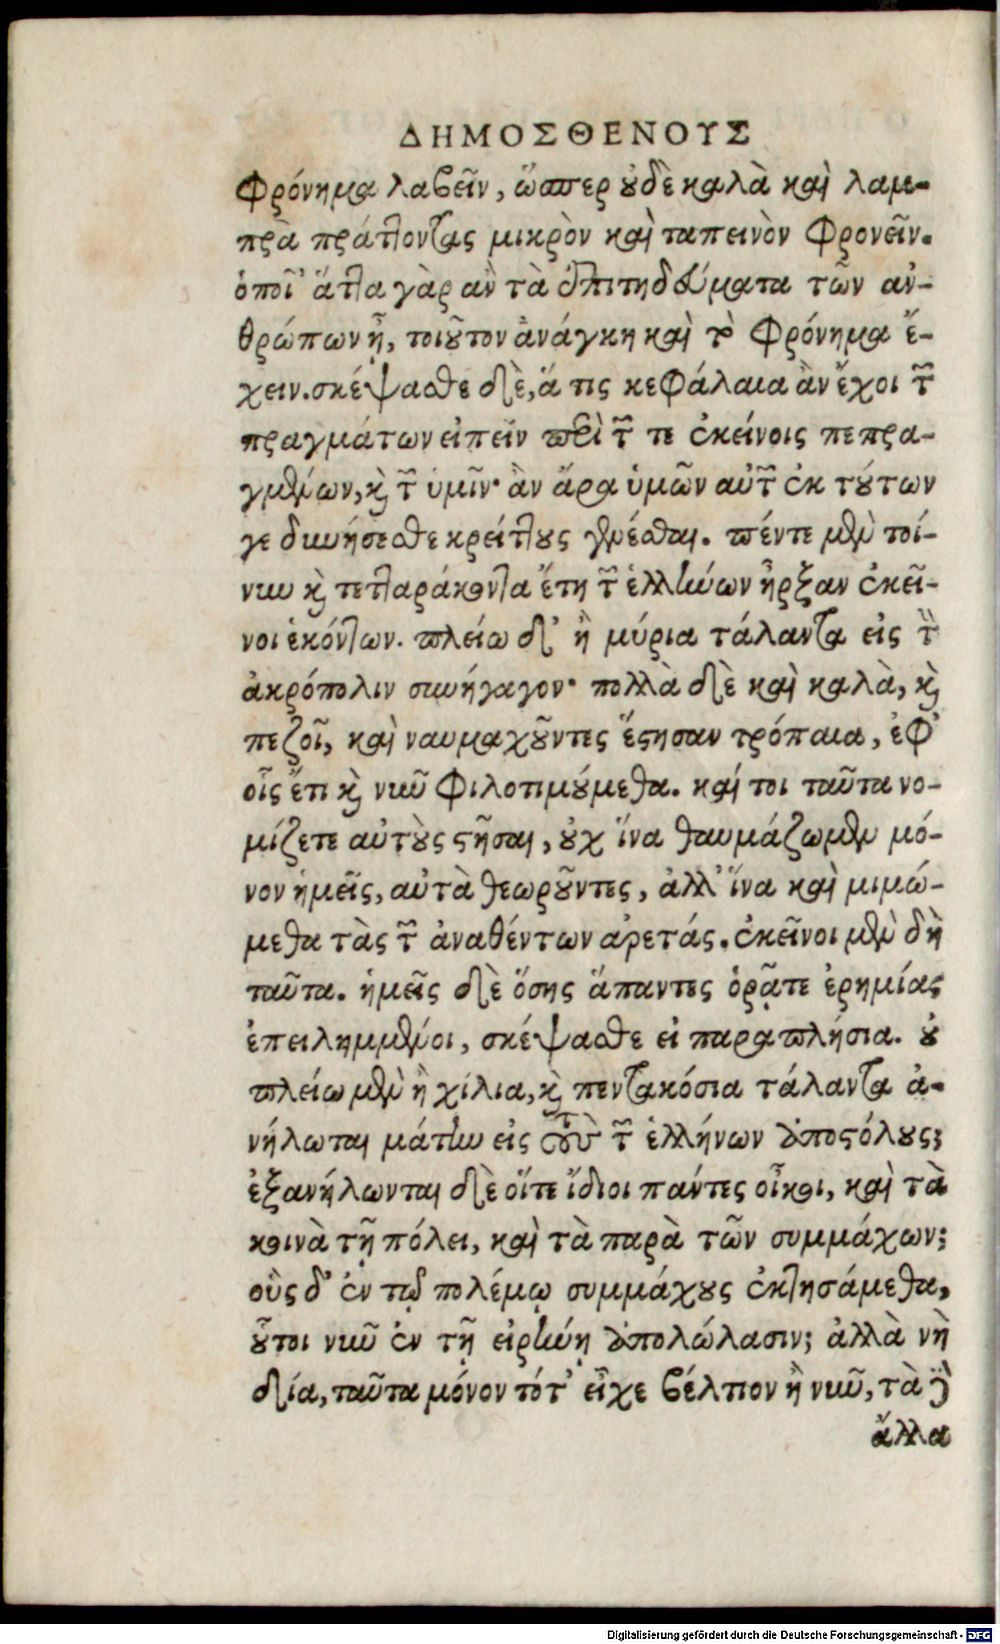 ΔΗΜΟΣΘΕΝΟΥΣ
φρόνημα λαβεῖν, ὥσπερ οὐδὲ καλὰ καὶ λαμ-
πρὰ πράττοντας μικρὸν καὶ ταπεινὸν φρονεῖν.
ὁποῖ' ἄττα γὰρ ἂν τὰ ἐπιτηδεύματα τῶν ἀν-
θρώπων ᾖ, τοιοῦτον ἀνάγκη καὶ τὸ φρόνημα ἔ-
χειν. σκέψασθε δὲ, ἅ τις κεφάλαια ἂν ἔχοι τῶν
πραγμάτων εἰπεῖν περὶ τῶν τε ἐκείνοις πεπρα-
γμένων, καὶ τῶν ὑμῖν· ἂν ἄρα ὑμῶν αὐτῶν ἐκ τούτων
γε δυνήσεσθε κρείττους γενέσθαι. πέντε μὲν τοί-
νυν καὶ τετταράκοντα ἔτη τῶν ἑλλήνων ἦρξαν ἐκεῖ-
νοι ἑκόντων. πλείω δ' ἢ μύρια τάλαντα εἰς τὴν
ἀκρόπολιν συνήγαγον· πολλὰ δὲ καὶ καλὰ, καὶ
πεζοῖ, καὶ ναυμαχοῦντες ἔστησαν τρόπαια, ἐφ'
οἷς ἔτι καὶ νῦν φιλοτιμούμεθα. καί τοι ταῦτα νο-
μίζετε αὐτοὺς στῆσαι, οὐχ ἵνα θαυμάζωμεν μό-
νον ἡμεῖς, αὐτὰ θεωροῦντες, ἀλλ' ἵνα καὶ μιμώ-
μεθα τὰς τῶν ἀναθέντων ἀρετάς. ἐκεῖνοι μὲν δὴ
ταῦτα. ἡμεῖς δὲ ὅσης ἅπαντες ὁρᾶτε ἐρημίας
ἐπειλημμένοι, σκέψασθε εἰ παραπλήσια. οὐ
πλείω μὲν ἢ χίλια, καὶ πεντακόσια τάλαντα ἀ-
νήλωται μάτην εἰς τοὺς τῶν ἑλλήνων ἀποστόλους;
ἐξανήλωνται δὲ οἵτε ἴδιοι πάντες οἶκοι, καὶ τὰ
κοινὰ τῇ πόλει, καὶ τὰ παρὰ τῶν συμμάχων;
οὓς δ' ἐν τῷ πολέμῳ συμμάχους ἐκτησάμεθα,
οὗτοι νῦν ἐν τῇ εἰρήνῃ ἀπολώλασιν; ἀλλὰ νὴ
δία, ταῦτα μόνον τότ' εἶχε βέλτιον ἢ νῦν, τὰ δ'
ἄλλα
Digitalisierung gefördert durch die Deutsche Forschungsgemeinschaft - DFG